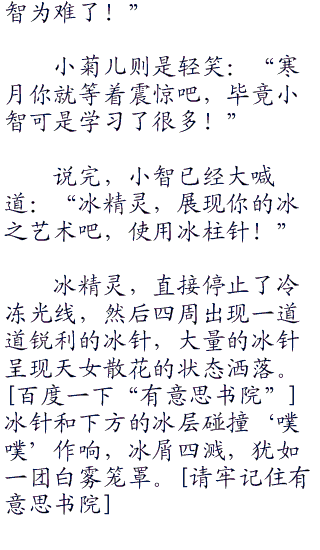 智为难了！”
小菊儿则是轻笑：“寒
月你就等着震惊吧，毕竟小
智可是学习了很多！”
说完，小智已经大喊
道：“冰精灵，展现你的冰
之艺术吧，使用冰柱针！”
冰精灵，直接停止了冷
冻光线，然后四周出现一道
道锐利的冰针，大量的冰针
呈现天女散花的状态洒落。
[百度一下“有意思书院”]
冰针和下方的冰层碰撞‘噗
噗’作响，冰屑四溅，犹如
一团白雾笼罩。[请牢记住有
意思书院]